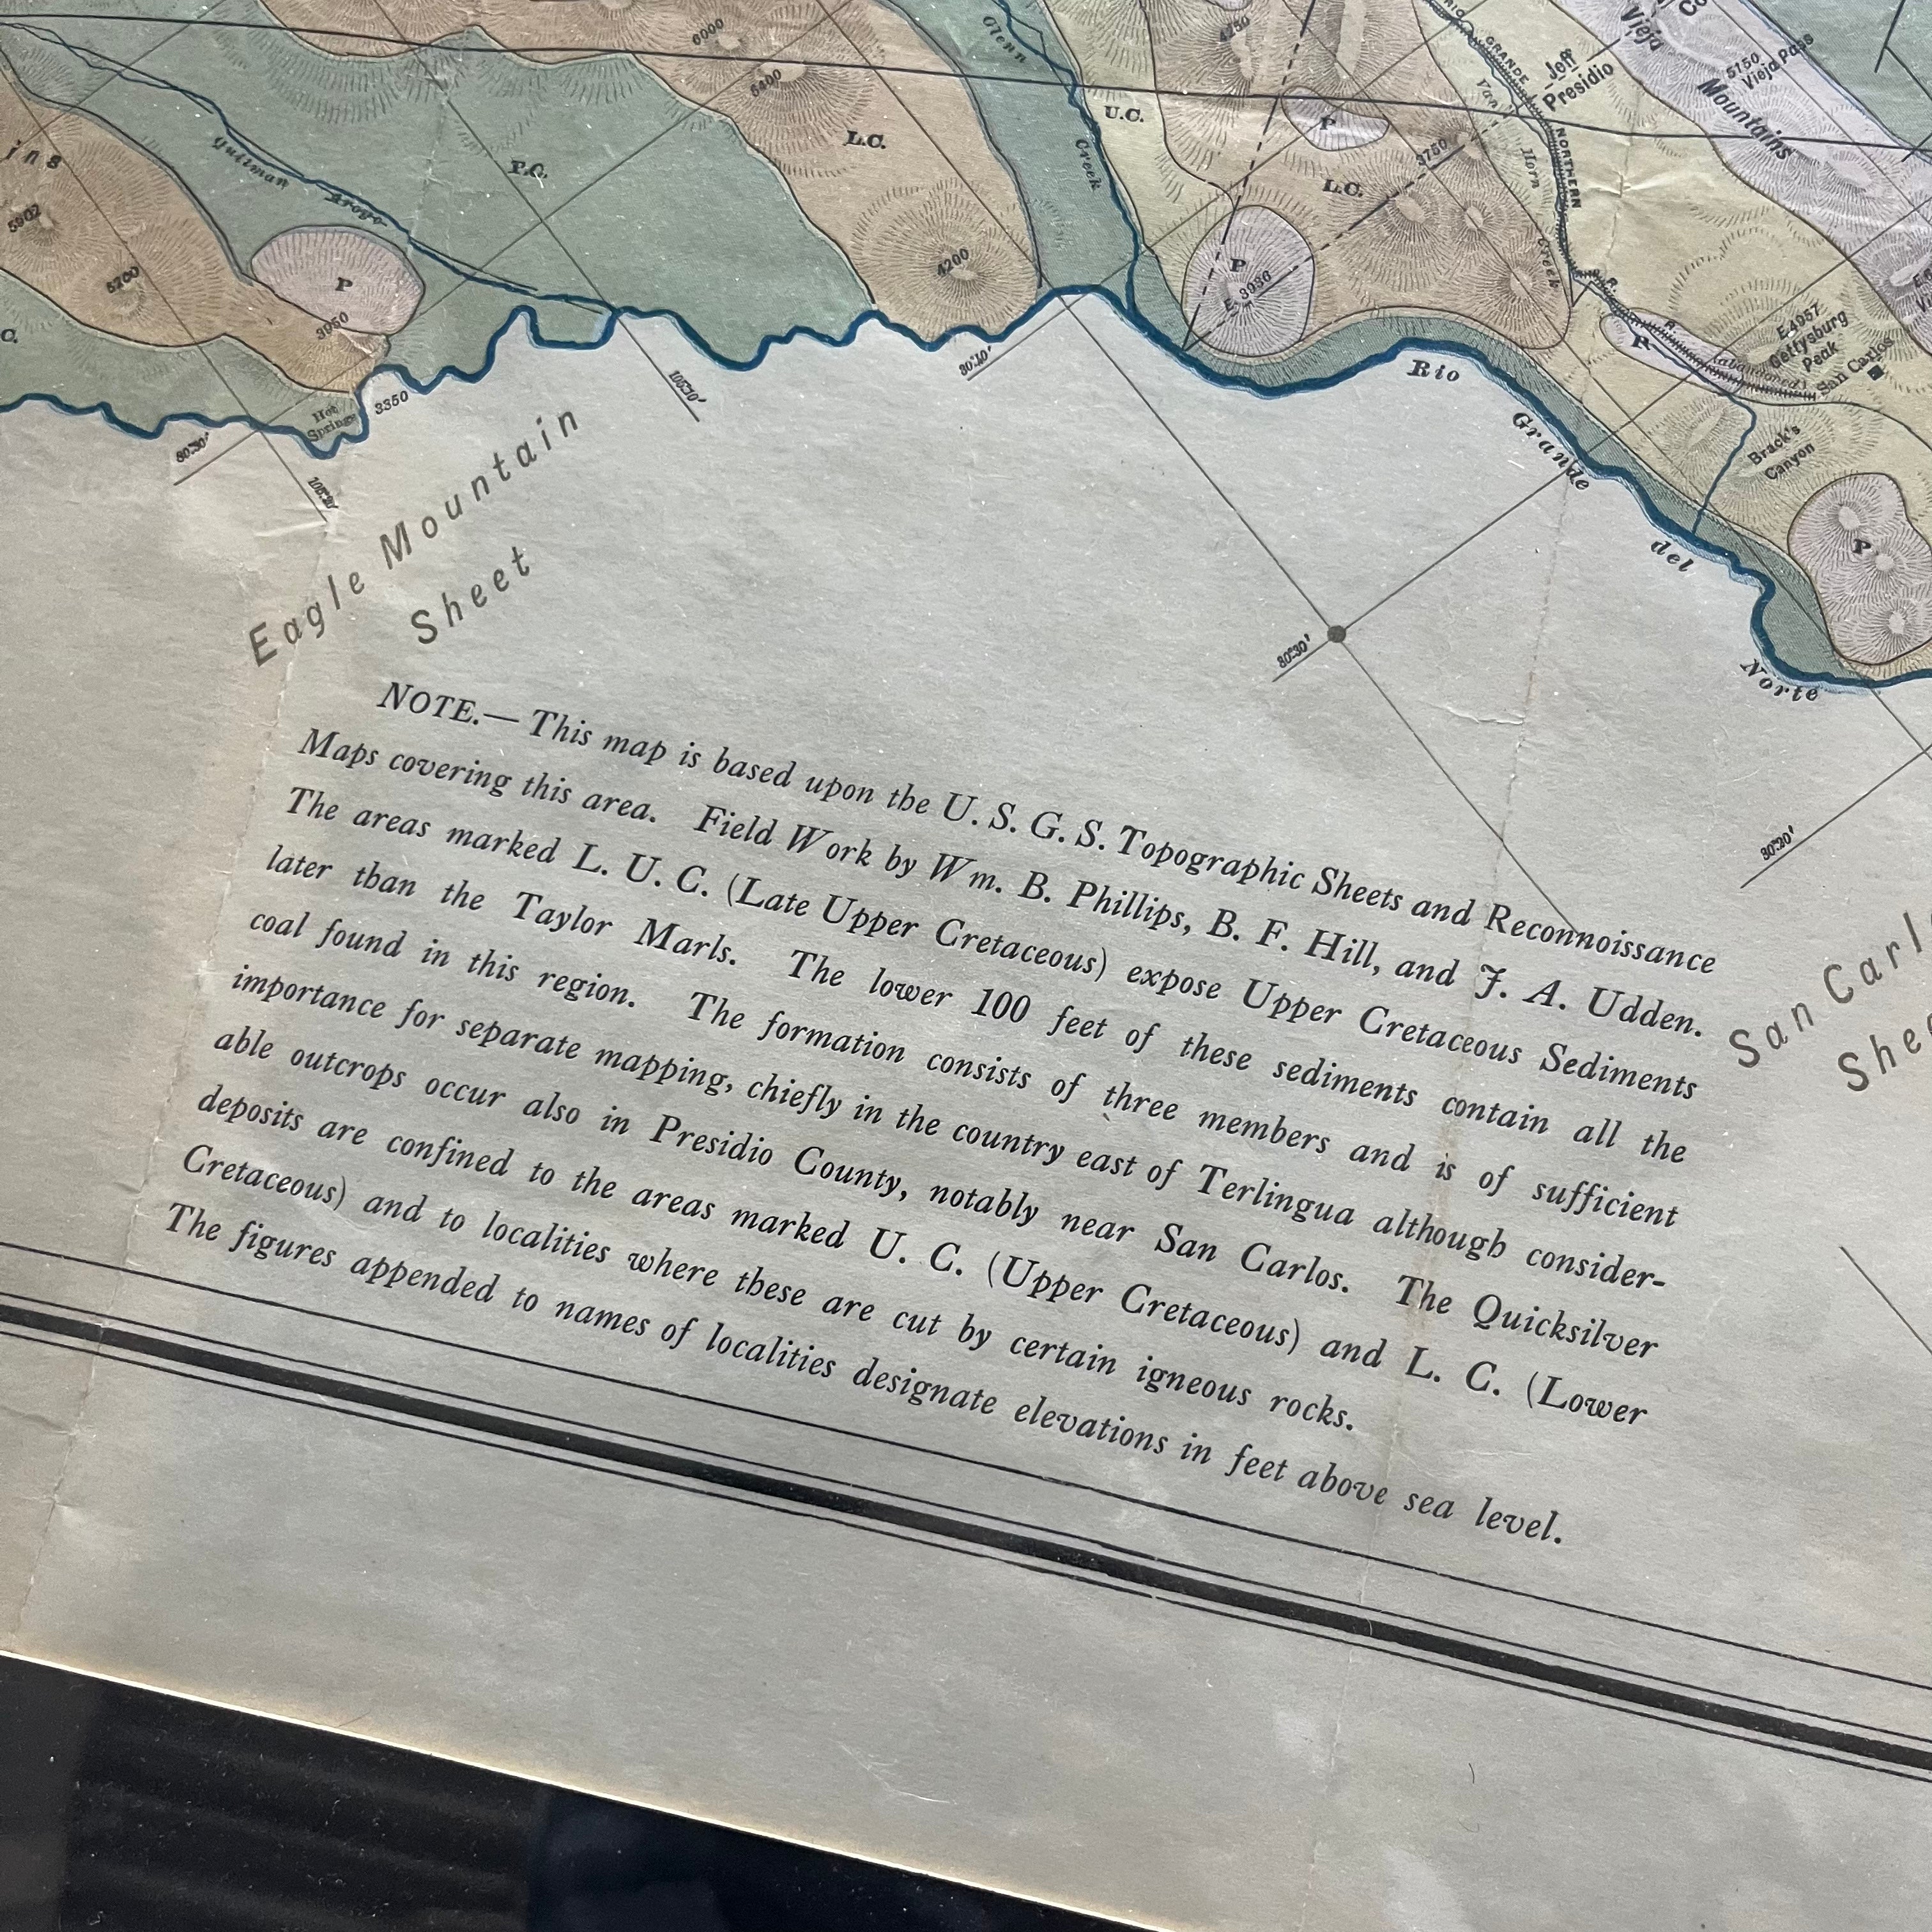 6000
4750
Glenn
GRANDE
Jeff
Presidio
Vieja
5150
Vieja Pass
Mountains
5400
U.C.
P
Van
NORTHERN
ins
Quitman
Arroyo
P.C.
L.C.
Creek
L.C.
3750
Horn
5902
5200
P
4200
P
E. 3930
Creek
R.
R.
3950
C.
P
(abandoned)
E.4957
Gettysburg
Peak
San Carlos
Hot
Springs
3350
Rio
Grande
del
Norte
Brack's
Canyon
P
30°30'
30°20'
Eagle Mountain
Sheet
San Carl
She
NOTE.— This map is based upon the U. S. G. S. Topographic Sheets and Reconnoissance
Maps covering this area. Field Work by Wm. B. Phillips, B. F. Hill, and J. A. Udden.
The areas marked L. U. C. (Late Upper Cretaceous) expose Upper Cretaceous Sediments
later than the Taylor Marls. The lower 100 feet of these sediments contain all the
coal found in this region. The formation consists of three members and is of sufficient
importance for separate mapping, chiefly in the country east of Terlingua although consider-
able outcrops occur also in Presidio County, notably near San Carlos. The Quicksilver
deposits are confined to the areas marked U. C. (Upper Cretaceous) and L. C. (Lower
Cretaceous) and to localities where these are cut by certain igneous rocks.
The figures appended to names of localities designate elevations in feet above sea level.